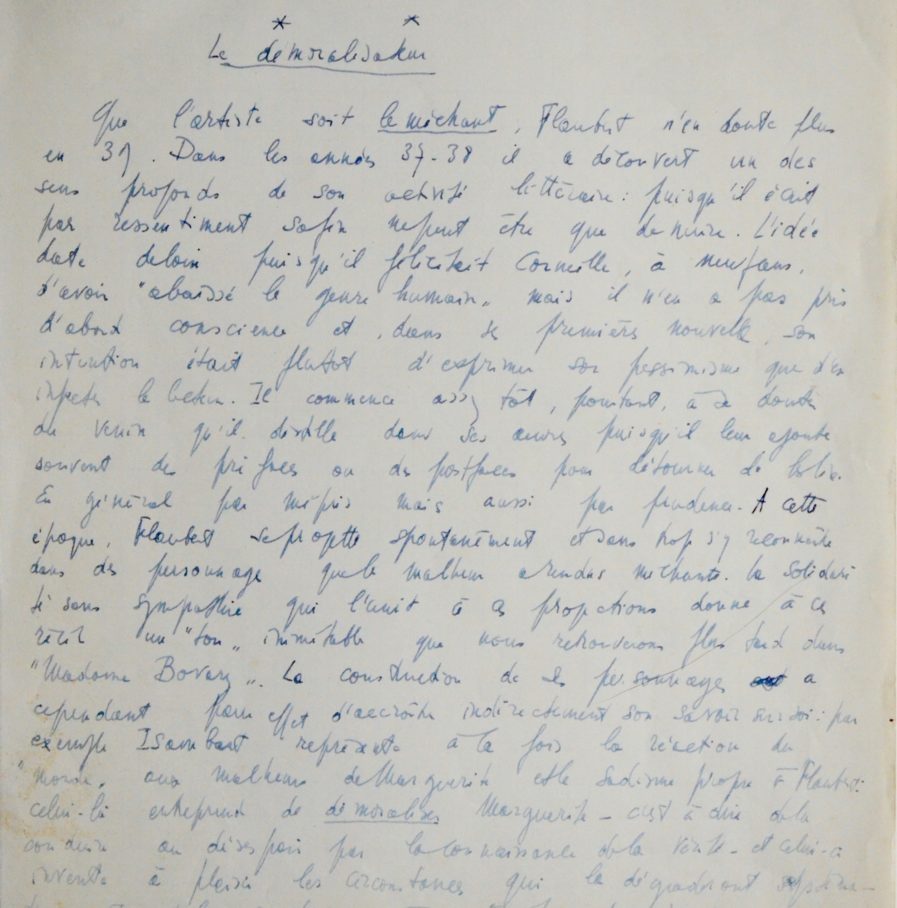 Le démoralisateur
Que l'artiste soit le méchant, Flaubert n'en doute plus
en 39. Dans les années 37-38 il a découvert un des
sens profonds de son activité littéraire : puisqu'il écrit
par ressentiment sa fin ne peut être que de nuire. L'idée
date de loin puisqu'il félicitait Corneille, à neuf ans,
d'avoir "abaissé le genre humain" mais il n'en a pas pris
d'abord conscience et, dans ses premières nouvelles, son
intention était plutôt d'exprimer son pessimisme que d'en
infecter le lecteur. Il commence assez tôt, pourtant, à se douter
du venin qu'il distille dans ses œuvres puisqu'il leur ajoute
souvent des préfaces ou des postfaces pour détourner de les lire.
En général par mépris mais aussi par prudence. A cette
époque, Flaubert se projette spontanément et sans trop s'y reconnaître
dans des personnages que le malheur a rendus méchants. La solidari
té sans sympathie qui l'unit à ces projections donne à ces
récits un "ton" inimitable que nous retrouverons plus tard dans
"Madame Bovary". La construction de ses personnages a
cependant pour effet d'accroître indirectement son savoir sur soi : par
exemple Isambart représente à la fois la réaction du
"monde" aux malheurs de Marguerite et le sadisme propre à Flaubert :
celui-là entreprend de démoraliser Marguerite – c'est à dire de la
conduire au désespoir par la connaissance de la vérité – et celui-ci
invente à plaisir les circonstances qui la dégraderont